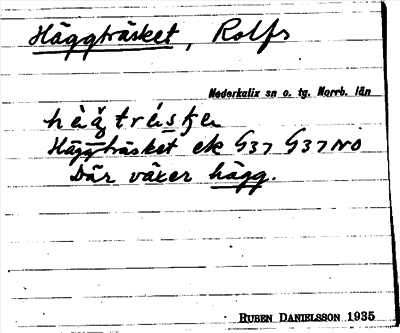 Häggträsket, Rolfs
Nederkalix sn o. tg. Norrb. län
Häggträsket ek G37 G37NO
Där växer hägg.
RUBEN DANIELSSON 1935